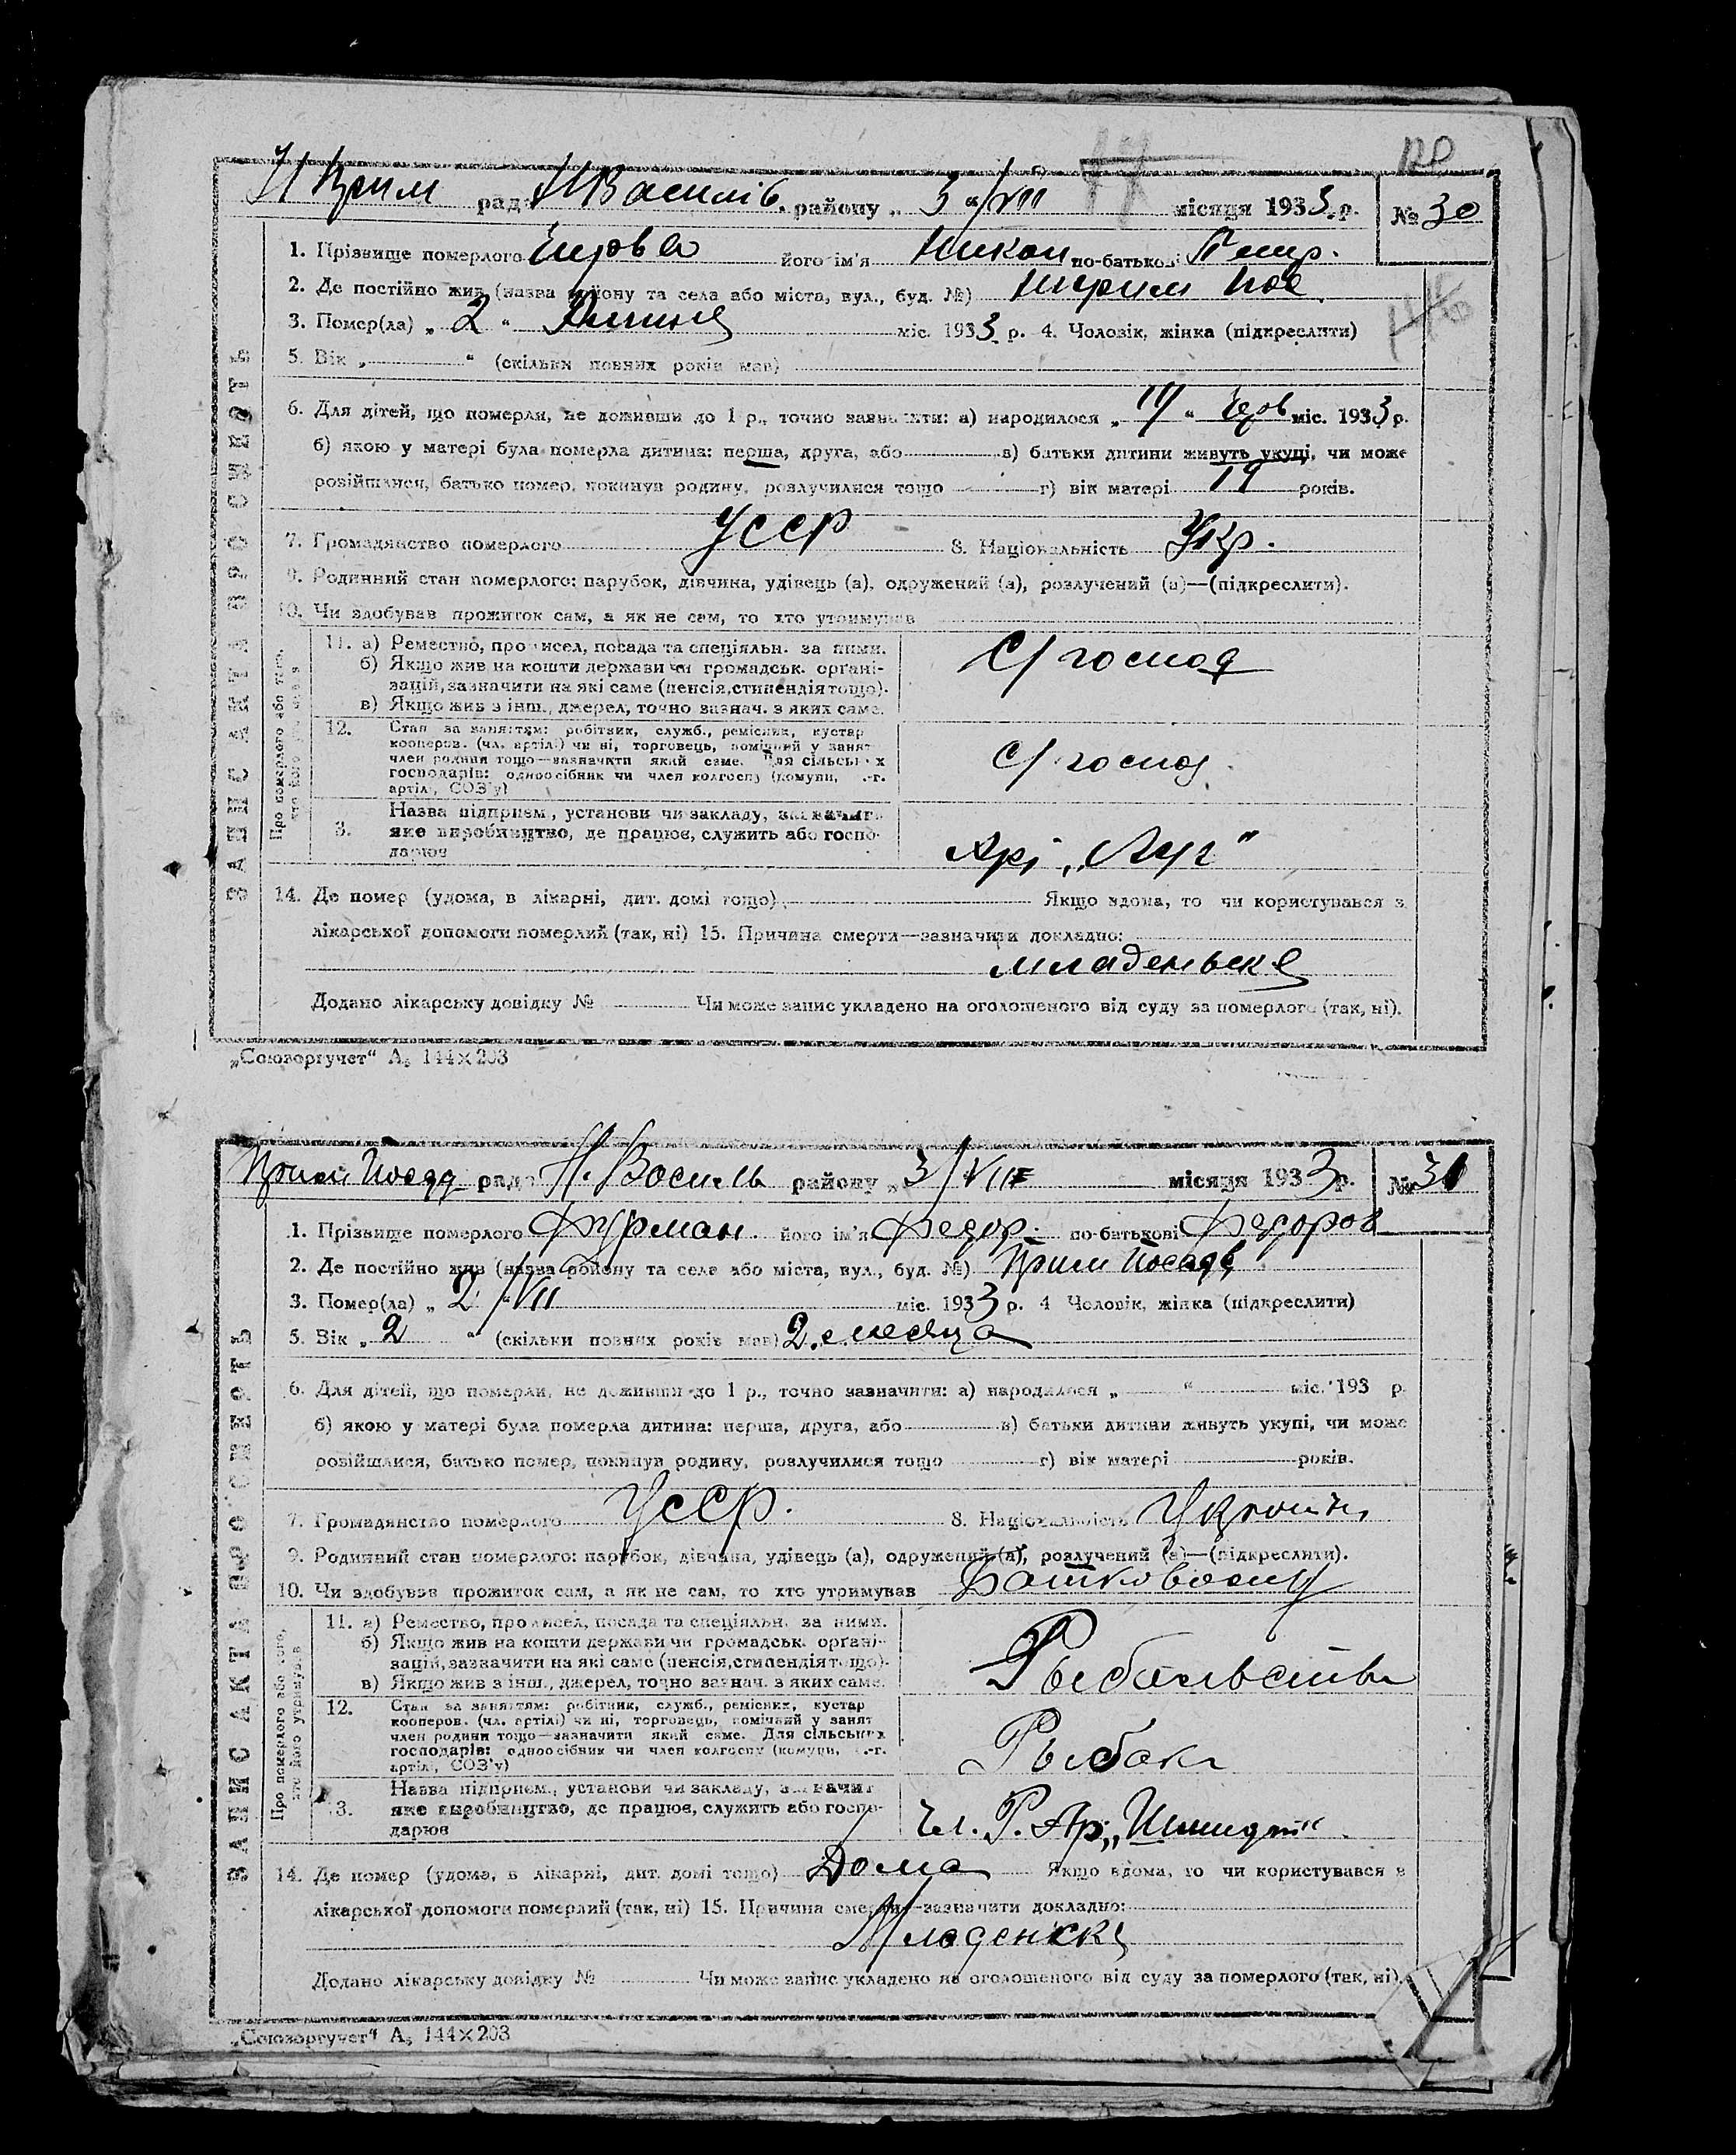 120
рада Н Василів. району „ 3 “ /VII місяця 1933 р. № 30
ЗАПИС АКТА ПРО СМЕРТЬ
1. Прізвище померлого його ім'я Никон по-батькові Петр.
2. Де постійно жив (назва району та села або міста, вул., буд. №)
3. Помер(ла) „ 2 “ міс. 1933 р. 4. Чоловік, жінка (підкреслити)
5. Вік „ “ (скільки повних років мав)
6. Для дітей, що померли, не доживши до 1 р., точно зазначити: а) народилося „ “ міс. 1933 р.
б) якою у матері була померла дитина: перша, друга, або в) батьки дитини живуть укупі, чи може
розійшлися, батько помер, покинув родину, розлучилися тощо г) вік матері 19 років.
7. Громадянство померлого УССР 8. Національність Укр.
9. Родинний стан померлого: парубок, дівчина, удівець (а), одружений (а), розлучений (а)—(підкреслити).
10. Чи здобував прожиток сам, а як не сам, то хто утримував
Про померлого або того,
хто його утримував
11. а) Ремество, промисел, посада та спеціяльн. за ними.
б) Якщо жив на кошти держави чи громадськ. орґані-
зацій, зазначити на які саме (пенсія, стипендія тощо).
в) Якщо жив з інш., джерел, точно зазнач. з яких саме.
С/господ
12. Стан за заняттям: робітник, служб., ремісник, кустар
кооперов. (чл. артілі) чи ні, торговець, помічний у занят
член родини тощо—зазначити який саме. Для сільських
господарів: одноосібник чи член колгоспу (комуни, с.-г.
артілі, СОЗ'у)
С/господ.
13. Назва підприєм., установи чи закладу, зазначит.
яке виробництво, де працює, служить або госпо-
дарює
14. Де помер (удома, в лікарні, дит. домі тощо) Якщо вдома, то чи користувався з
лікарської допомоги померлий (так, ні) 15. Причина смерти—зазначити докладно:
младеньске
Додано лікарську довідку № Чи може запис укладено на оголошеного від суду за померлого (так, ні).
„Союзоргучет“ А5 144×203
рада Н. Василь району „ 3/VII місяця 1933 р. № 31
ЗАПИС АКТА ПРО СМЕРТЬ
1. Прізвище померлого Фурман його ім'я Федор. по-батькові Федоров
2. Де постійно жив (назва району та села або міста, вул., буд. №)
3. Помер(ла) „ 2 “ /VII міс. 1933 р. 4 Чоловік, жінка (підкреслити)
5. Вік „ 2 “ (скільки повних років мав) 2 месяца
6. Для дітей, що померли, не доживши до 1 р., точно зазначити: а) народилося „ “ міс. 193 р.
б) якою у матері була померла дитина: перша, друга, або в) батьки дитини живуть укупі, чи може
розійшлися, батько помер, покинув родину, розлучилися тощо г) вік матері років.
7. Громадянство померлого УССР. 8. Національність
9. Родинний стан померлого: парубок, дівчина, удівець (а), одружений (а), розлучений (а)—(підкреслити).
10. Чи здобував прожиток сам, а як не сам, то хто утримував
Про померлого або того,
хто його утримував
11. а) Ремество, промисел, посада та спеціяльн. за ними.
б) Якщо жив на кошти держави чи громадськ. орґані-
зацій, зазначити на які саме (пенсія, стипендія тощо).
в) Якщо жив з інш., джерел, точно зазнач. з яких саме.
12. Стан за заняттям: робітник, служб., ремісник, кустар
кооперов. (чл. артілі) чи ні, торговець, помічний у занят
член родини тощо—зазначити який саме. Для сільських
господарів: одноосібник чи член колгоспу (комуни, с.-г.
артілі, СОЗ'у)
Рыбак
13. Назва підприєм., установи чи закладу, зазначит
яке виробництво, де працює, служить або госпо-
дарює
Чл. Р. Ар.
14. Де помер (удома, в лікарні, дит. домі тощо) Дома Якщо вдома, то чи користувався з
лікарської допомоги померлий (так, ні) 15. Причина смерти—зазначити докладно:
Додано лікарську довідку № Чи може запис укладено на оголошеного від суду за померлого (так, ні).
„Союзоргучет“ А5 144×203